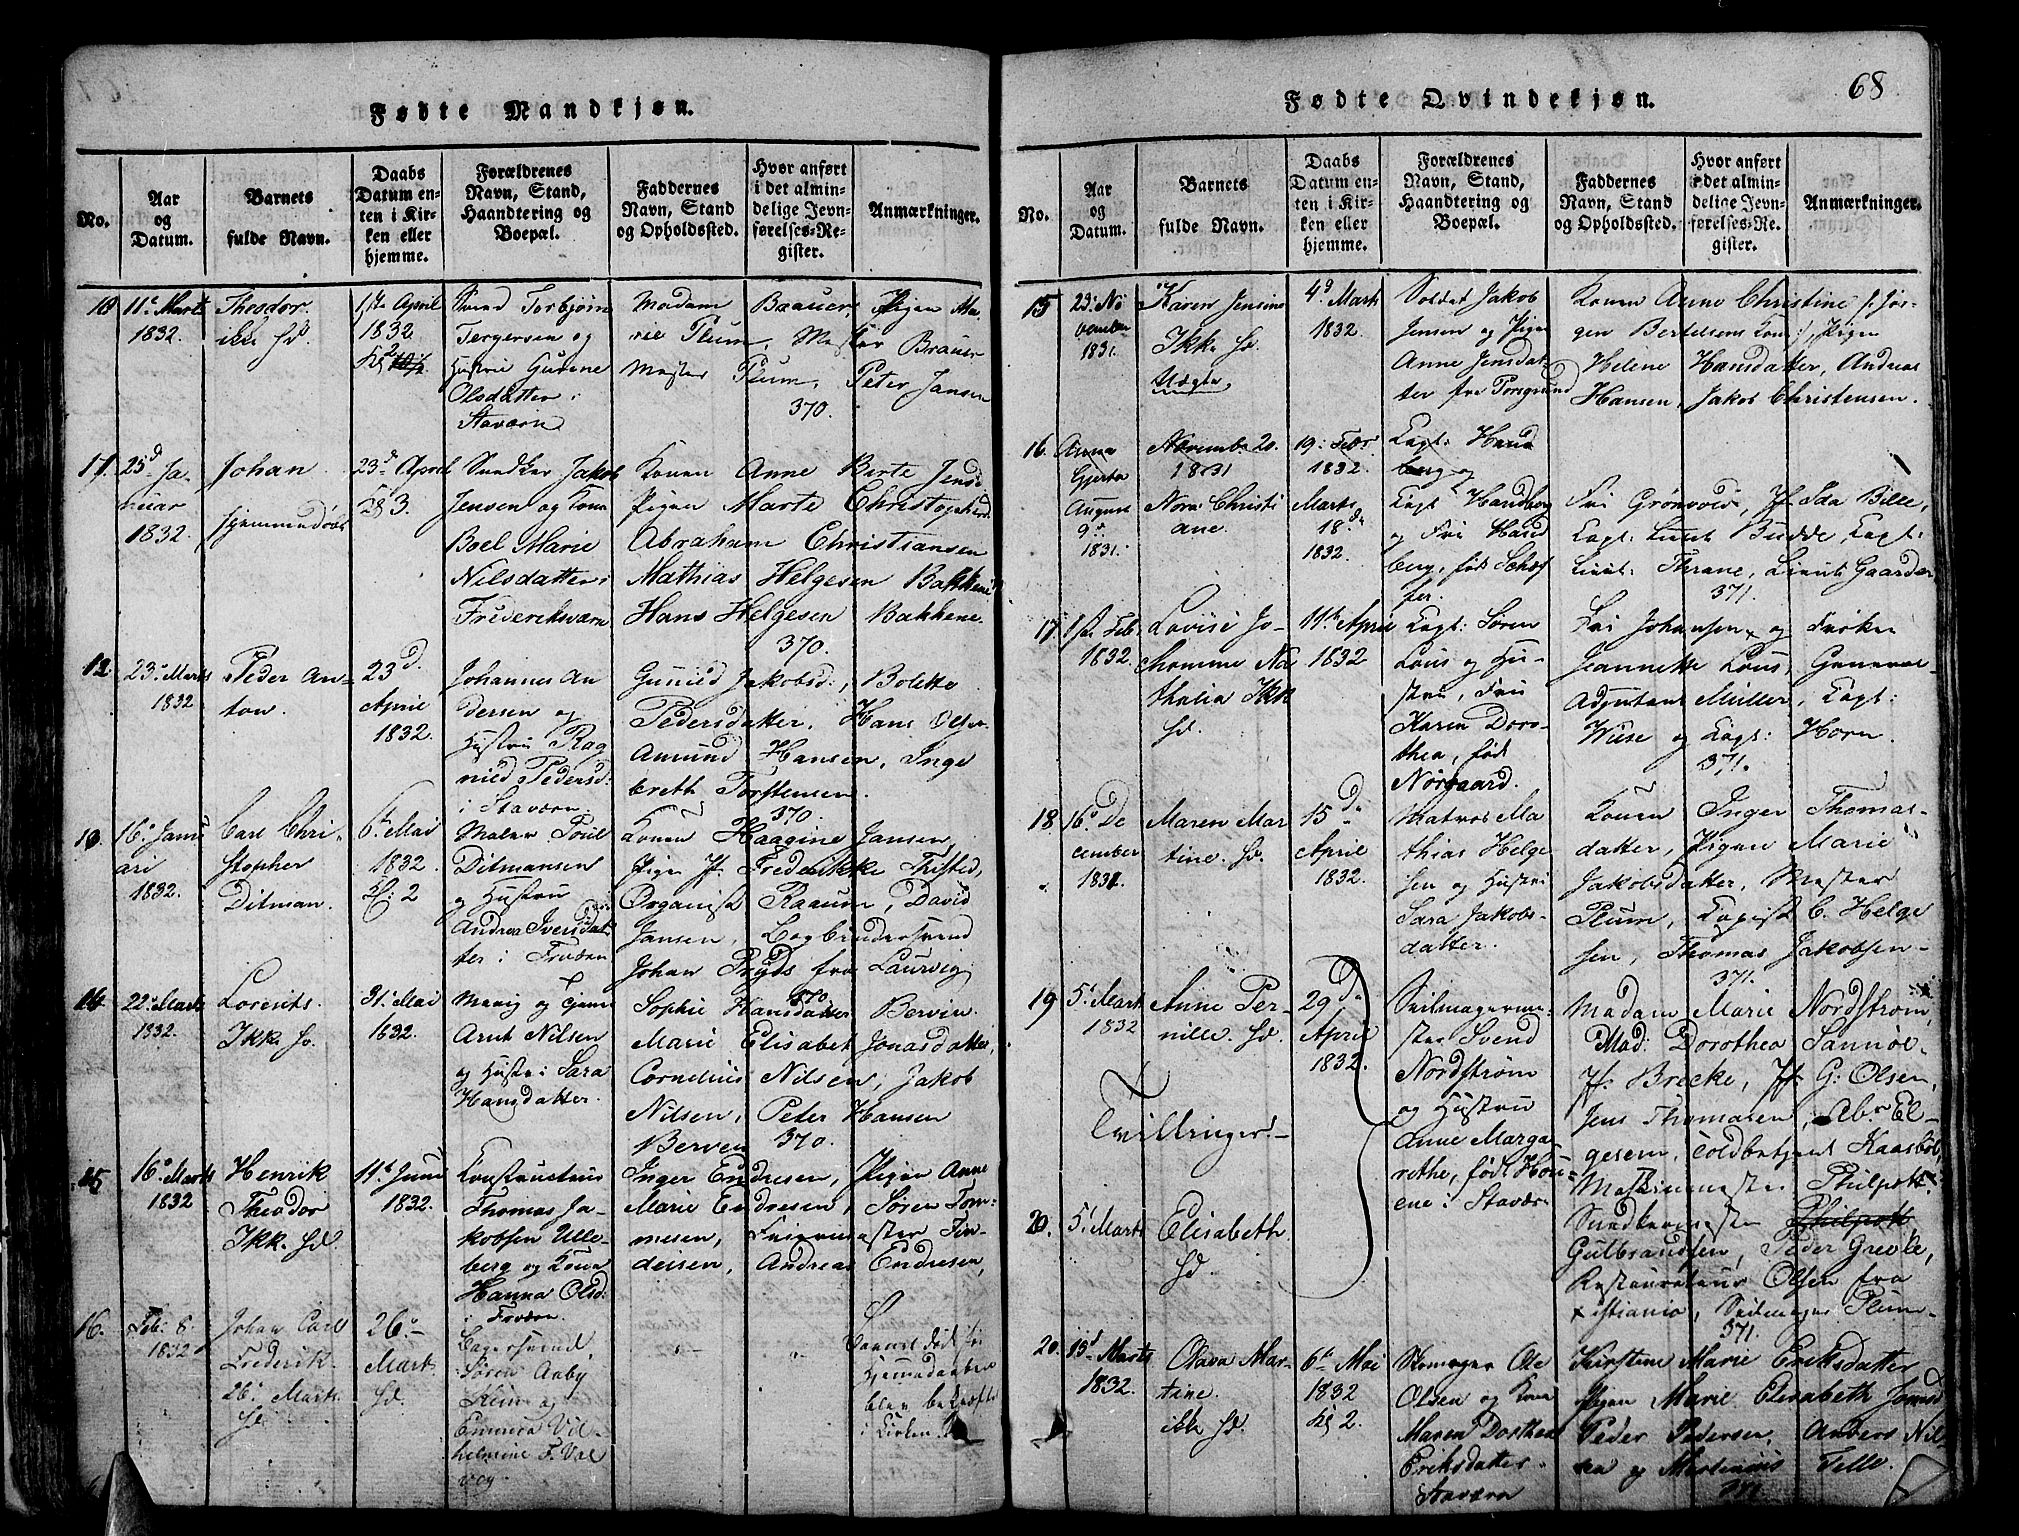 68.
Fødte Mandkjøn.
No.
Aar
og
Datum.
Barnets
fulde Navn.
Daabs
Datum en-
ten i Kir-
ken eller
hjemme.
Forældrenes
Navn, Stand,
Haandtering og
Boepæl.
Faddernes
Navn, Stand
og Opholdssted.
Hvor anført
i det almin-
delige Jevn-
førelses-Re-
gister.
Anmærkninger.
11. Marts
1832.
Theodor
ikke hd.
April
1832
Torbjørn
Tergersen og
Hustrue Gurine
Olsdatter i
Staværn
Madam Baauer, Pigen Ma-
rie Plum, Mester Brauer
Mester Plum, Peter Jansen
370.
25d Ja-
nuar
1832.
Johan
hjemmedøbt
23d April
Kl 3.
Jakob
Jensen og Kone
Boel Marie
Nilsdatter i
Frederiksværn
Konen Anne Berte Jensd
Pigen Marte Christophersd
Abraham Christiansen
Mathias Helgesen Bakkene
Hans Helgesen Bakkene
370.
12.
23. Marts
1832
Peder An-
ton.
23d
April
1832.
Johannes An
dersen og
Hustru Rag
nild Pedersd
i Staværn
Gunild Jakobsd:, Bolette
Pedersdatter, Hans Olsen
Amund Hansen, Inge
brett Torstensen.
370.
13
16. Janu
ari
1832.
Carl Chri-
stopher
Ditman.
6te Mai
1832.
Kl: 2
Maler Poul
Ditmansen
og Hustru
Andrea Iversdat
ter i Fr.værn
Konen Haagine Jansen,
Pige Jf. Frederikke Thisted,
Organist Raaum, David
Jansen, Bogbindersvend
Johan Pryds fra Laurvig
370
14.
22. Marts
1832.
Lorents.
Ikke hd.
31. Mai
1832.
Arnt Nilsen
og Hustru Sara
Hansdatter.
Sophie Hansdatter Bervin.
Marie Elisabet Jonasdatter,
Cornelius Nilsen, Jakob
Nilsen, Peter Hansen
Berven 370.
15
16. Marts
1832
Henrik
Theodor
Ikke hd.
11te Juni
1832.
Thomas Ja-
kobsen Ulle-
berg og Kone
Hanna Olsd:
i Fr.værn
Inger Endresen, Pigen Anne
Marie Endresen, Søren Tom-
mesen, Feiermester Fin-
deisen, Andreas Endresen,
16.
Feb: 8.
1832.
Johan Carl
Frederik
26. Marts.
hd.
26.
Marts
hd.
Bagersvend,
Søren Aaby
Klein og
Emmica Vil-
helmine F. Val
vog.
Barnet død før
Hjemmedaaben
blev bekræftet
i Kirken.
Fødte Qvindekjøn.
No.
Aar
og
Datum.
Barnets
fulde Navn.
Daabs
Datum en-
ten i Kir-
ken eller
hjemme.
Forældrenes
Navn, Stand,
Haandtering og
Boepæl.
Faddernes
Navn, Stand
og Opholdssted.
Hvor anført
i det almin-
delige Jevn-
førelses-Re-
gister.
Anmærkninger.
15
23. No
vember
1831.
Karen Jensine
Ikke hd.
Uægte
4d Marts
1832.
Soldat Jakob
Jensen og Pigen
Anne Jensdat-
ter fra Porsgrund
Konen Anne Christine /: Jør-
gen Bertelsens Kone :/, Pigen
Helene Hansdatter, Andreas
Hansen, Jakob Christensen.
16.
Anna
Gjerta
August
9d
1831.
November 20.
1831
Nora Christi
ane.
19: Febr
1832.
Marts
18d
1832.
Capt: Hand
berg og
Capt Handberg
og Fru Hand
berg, født Schøf
fer.
Fru Grønvold, Jf. Ida Bille,
Capt: Lieut Budde, Capt:
Lieut: Thrane, Lieut: Gaarder
371.
17
1ste Feb:
1832.
Lovise Jo-
hanne Na
thalia Ikke
hd.
11te April
1832
Capt: Søren
Lous og Hu-
stru, Fru
Karen Doro-
thea, født
Nørgaard.
Fru Johansen og Frøken
Jeannette Lous, General-
Adjutant Müller, Capt:
Wiese og Capt: Horn.
371.
18
16. De
cember
1831.
Maren Mar
tine. hd.
15d
April
1832.
Matros Ma
thias Helge
sen og Hustru
Sara Jakobs-
datter.
Konen Inger Thomas-
datter, Pigen Marie
Jakobsdatter, Mester
Plum, Copist C. Helge
sen, Thomas Jakobsen
371.
19
5. Marts
1832
Anne Per-
nille. hd.
29d
April
1832.
Tvillinger.
Seilmagerme-
ster Svend
Nordstrøm
og Hustru
Anne Marga-
rethe, født Hou-
ene i Stavær
Madam Marie Nordstrøm,
Mad: Dorothea Sannøe-
Jf. Brecke, Jf. G: Olsen,
Jens Thomasen, Abr. El-
gesem, Toldbetjent Kaasbøl
Maskinmester Philpott
20.
5. Marts
Elisabeth
hd.
Philpott
Gulbrandsen, Peder Grevle,
Restaurateur Olsen fra
Xstiania, Seilmager Plum
371.
20.
15d Marts
1832.
Olava Mar-
tine.
ikke hd.
6te Mai
1832
Kl 2.
Skomager Ole
Olsen og Kone
Maren Dorthea
Eriksdatter
Staværn
Kirstine Marie Eriksdatter
Pigen Marie Elisabeth Jonasd
Peder Pedersen, Anders Nil
sen og Martinius Telle.
371